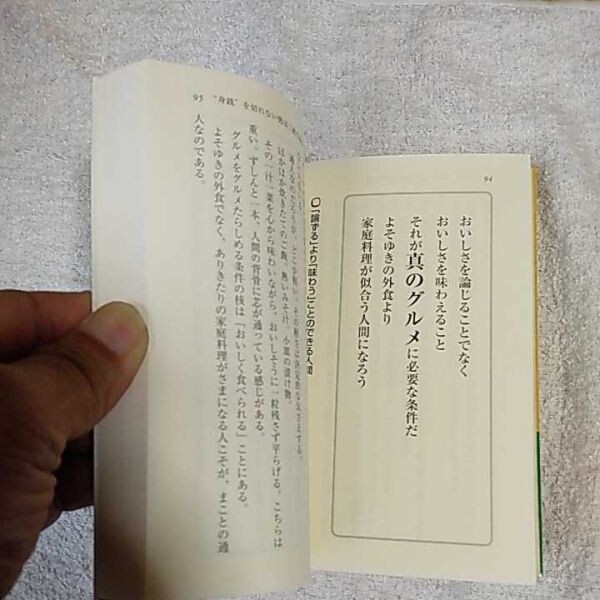 94
おいしさを論じることでなく
おいしさを味わえること
それが真のグルメに必要な条件だ
よそゆきの外食より
家庭料理が似合う人間になろう
〇「論ずる」より「味わう」ことのできる人間
95 "身銭"を切れない男は
その軽さは決定的な欠点とする。
ほかほか炊きたてのご飯、熱いみそ汁、小皿の漬け物。
その一汁一菜を心から味わいながら、おいしそうに一粒残さず平らげる。こちらは
重い。ずしんと一本、人間の背骨に芯が通っている感じがある。
グルメをグルメたらしめる条件の核は「おいしく食べられる」ことにある。
よそゆきの外食でなく、ありきたりの家庭料理がさまになる人こそが、まことの通
人なのである。